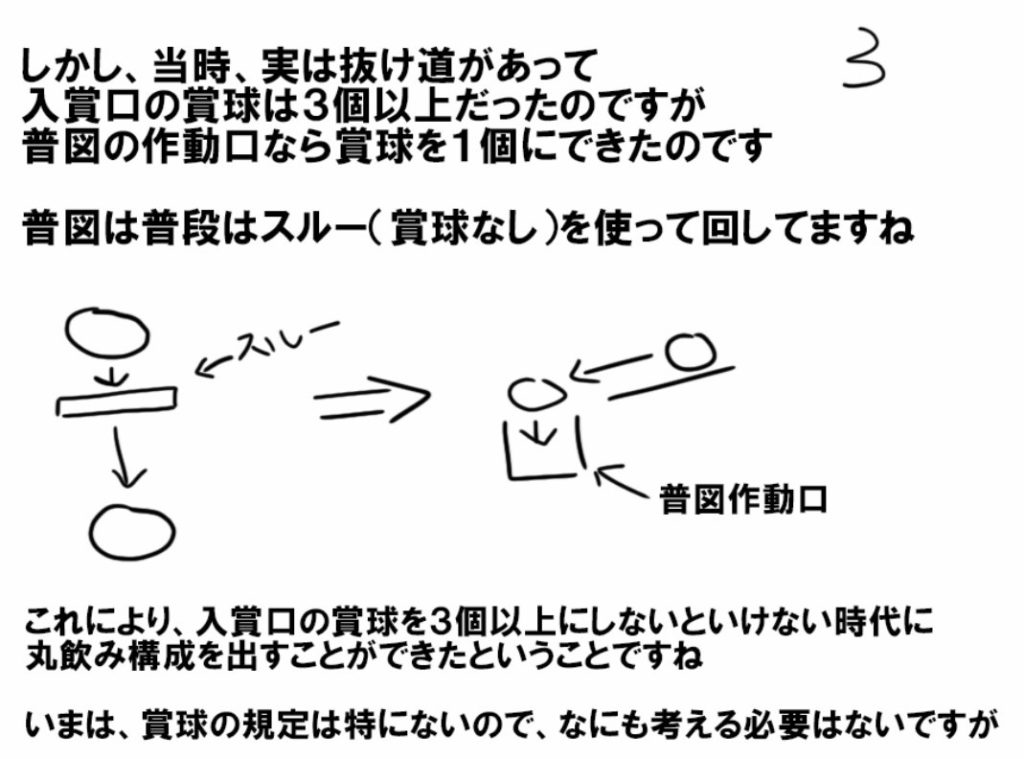 3
しかし、当時、実は抜け道があって
入賞口の賞球は３個以上だったのですが
普図の作動口なら賞球を１個にできたのです
普図は普段はスルー（賞球なし）を使って回してますね
スルー
普図作動口
これにより、入賞口の賞球を３個以上にしないといけない時代に
丸飲み構成を出すことができたということですね
いまは、賞球の規定は特にないので、なにも考える必要はないですが